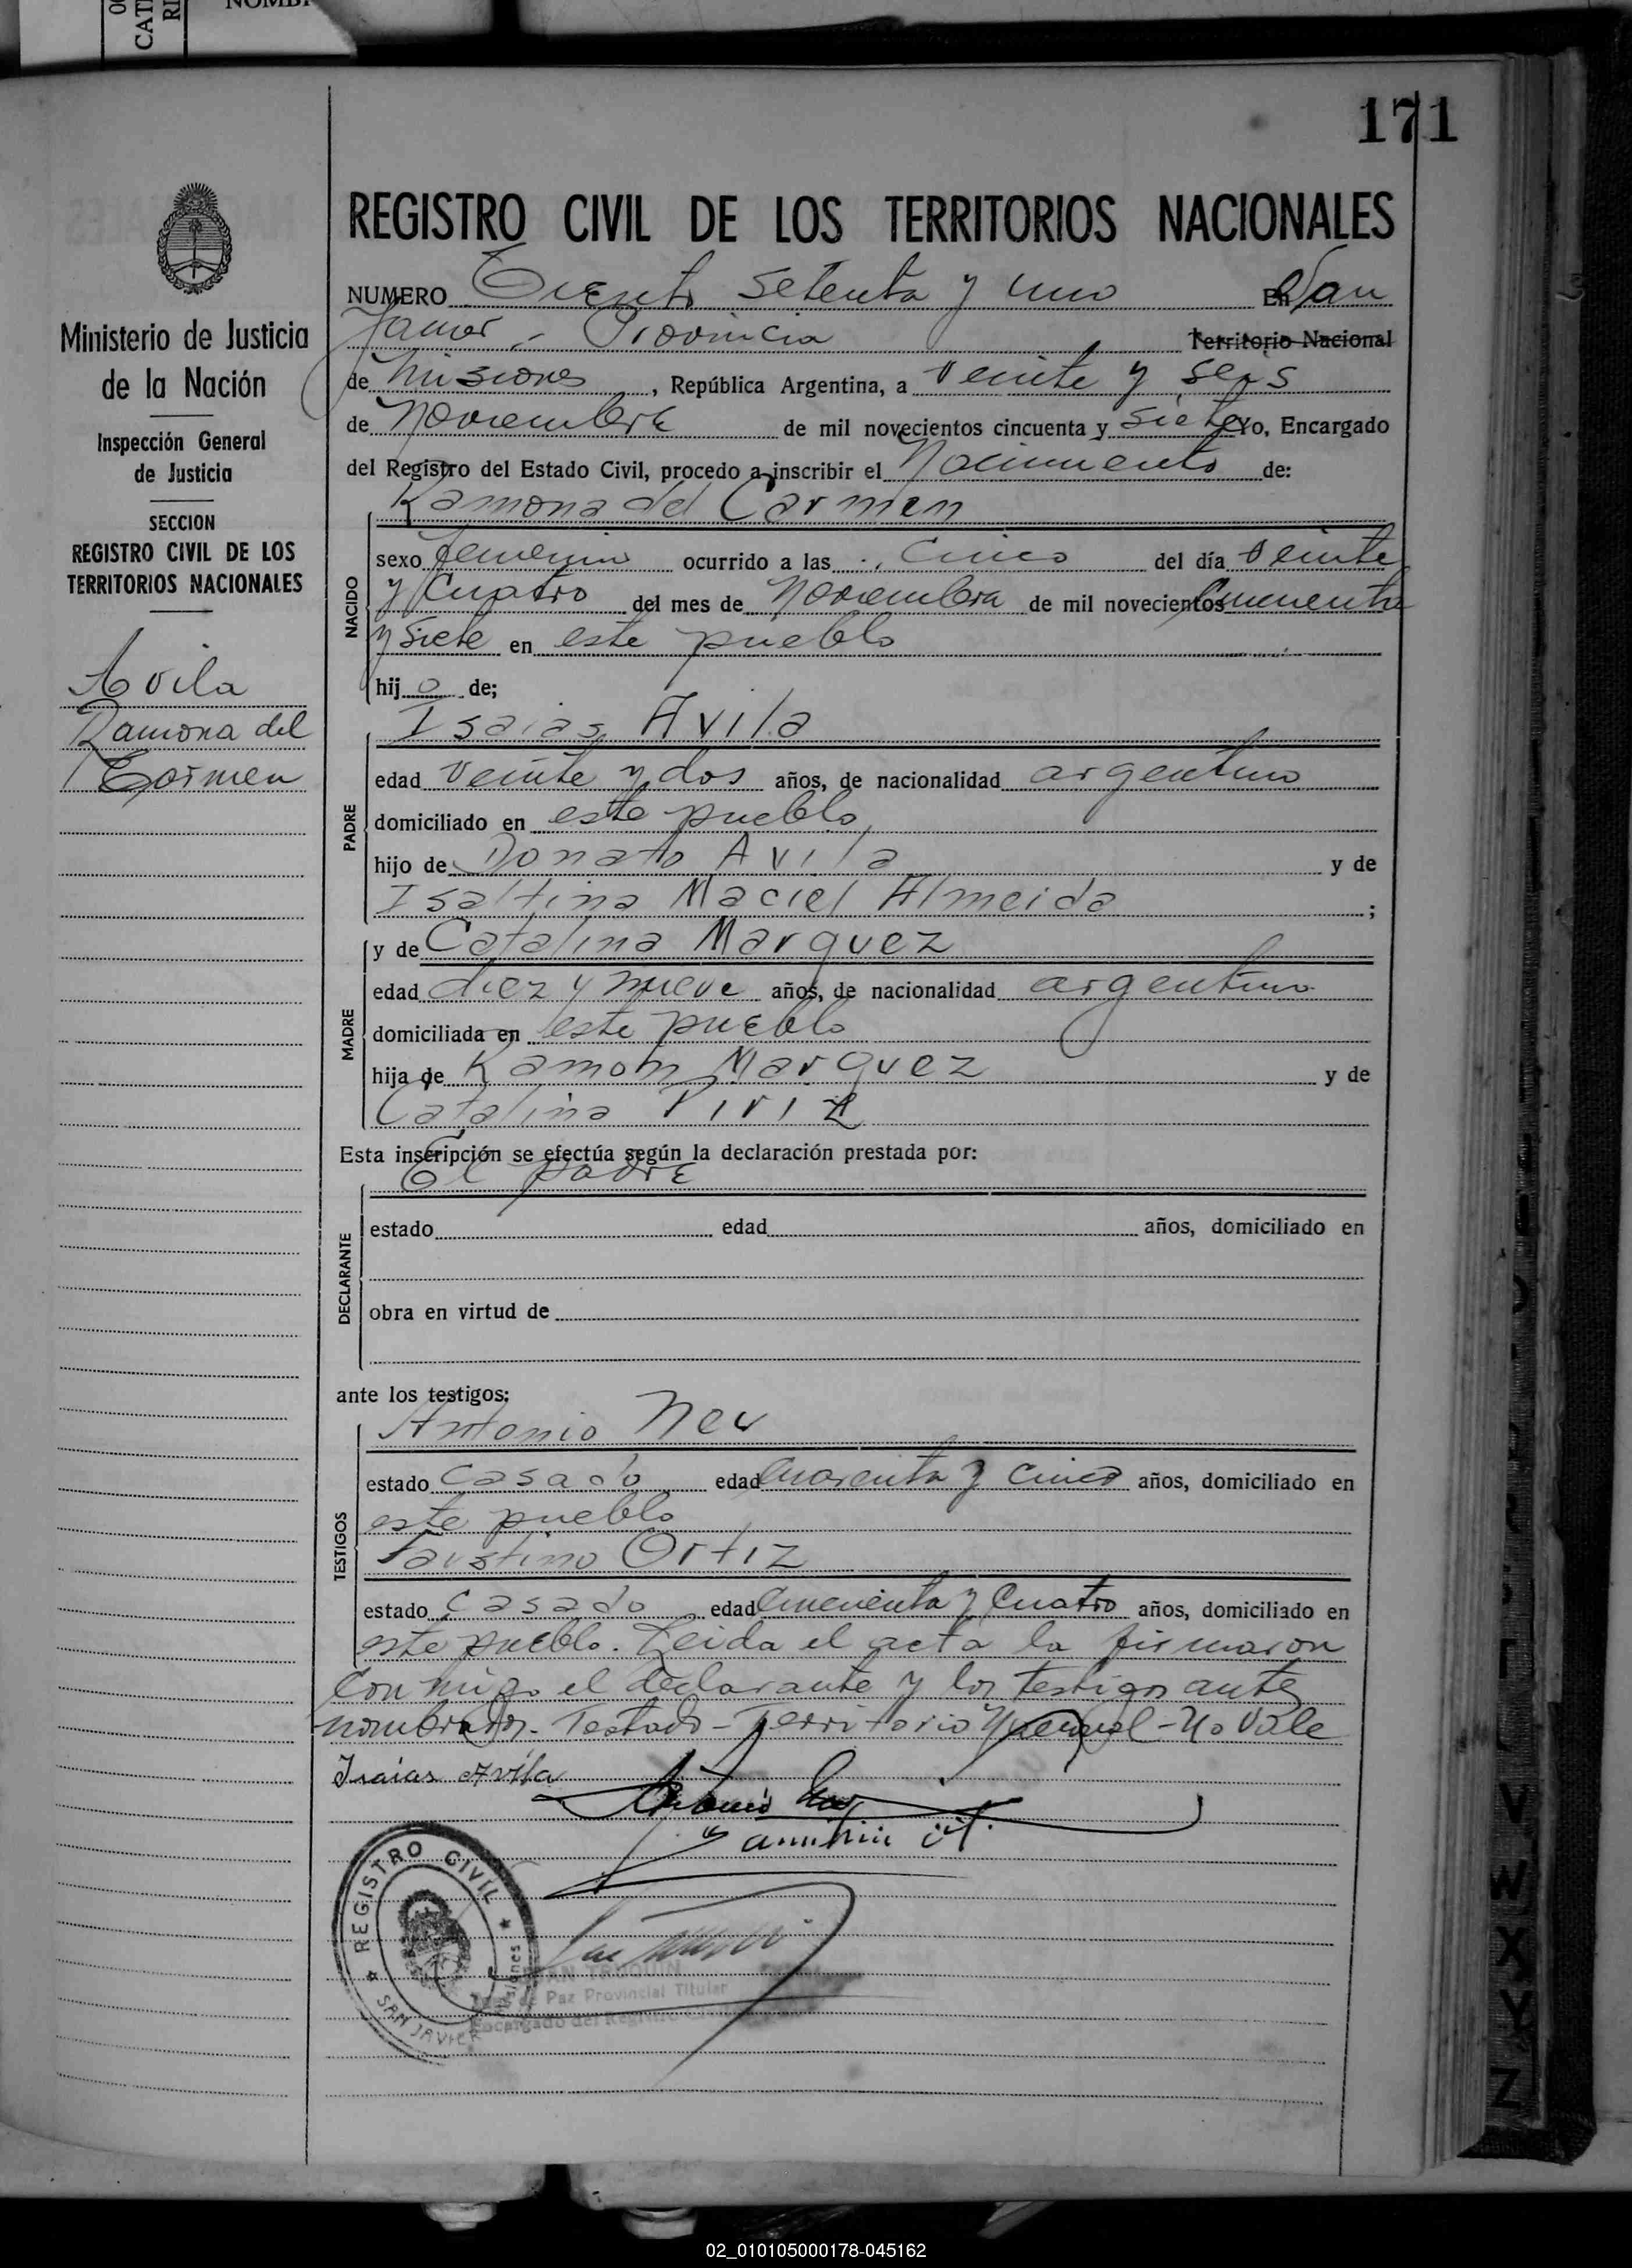 NOMB
CAT
RE
171
Ministerio de Justicia
de la Nación
Inspección General
de Justicia
SECCION
REGISTRO CIVIL DE LOS
TERRITORIOS NACIONALES
Avila
Ramona del
Carmen
REGISTRO CIVIL DE LOS TERRITORIOS NACIONALES
NUMERO Ciento setenta y uno En San
Javier - Provincia Territorio Nacional
de Misiones, República Argentina, a veinte y seis
de Noviembre de mil novecientos cincuenta y siete Yo, Encargado
del Registro del Estado Civil, procedo a inscribir el Nacimiento de:
Ramona del Carmen
NACIDO
sexo femenino ocurrido a las cinco del día veinte
y cuatro del mes de Noviembre de mil novecientos cincuenta
y siete en este pueblo
hij a de;
Isaias Avila
PADRE
edad veinte y dos años, de nacionalidad argentino
domiciliado en este pueblo
hijo de Donato Avila y de
Isaltina Maciel Almeida ;
y de Catalina Marquez
MADRE
edad diez y nueve años, de nacionalidad argentina
domiciliada en este pueblo
hija de Ramon Marquez y de
Catalina Piriz
Esta inscripción se efectúa según la declaración prestada por:
El padre
DECLARANTE
estado edad años, domiciliado en
obra en virtud de
ante los testigos:
Antonio Ney
TESTIGOS
estado casado edad cuarenta y cinco años, domiciliado en
este pueblo
Faustino Ortiz
estado casado edad cincuenta y cuatro años, domiciliado en
este pueblo. Leida el acta la firmaron
conmigo el declarante y los testigos antes
nombrados. Testado - Territorio Nacional - No vale
Isaias Avila
REGISTRO CIVIL
SAN JAVIER Misiones
JUAN TRUQUIN
Juez de Paz Provincial Titular
Encargado del Registro
02_010105000178-045162